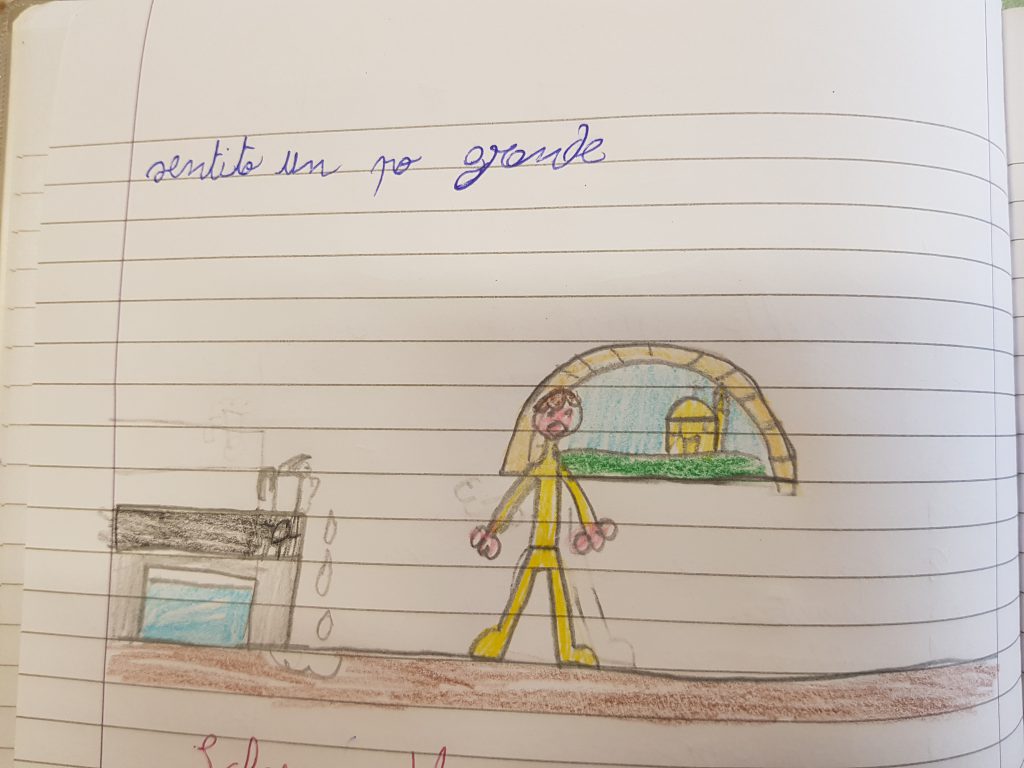 sentito un po grande